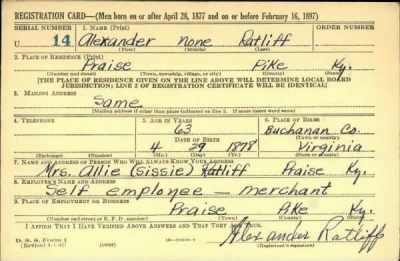 REGISTRATION CARD—(Men born on or after April 28, 1877 and on or before February 16, 1897)
SERIAL NUMBER 1. NAME (Print) ORDER NUMBER
U 14 Alexander none Ratliff
(First) (Middle) (Last)
2. PLACE OF RESIDENCE (Print)
Praise Pike Ky.
(Number and street) (Town, township, village, or city) (County) (State)
[THE PLACE OF RESIDENCE GIVEN ON THE LINE ABOVE WILL DETERMINE LOCAL BOARD
JURISDICTION; LINE 2 OF REGISTRATION CERTIFICATE WILL BE IDENTICAL]
3. MAILING ADDRESS
Same
[Mailing address if other than place indicated on line 2. If same insert word same]
4. TELEPHONE 5. AGE IN YEARS 6. PLACE OF BIRTH
63 Buchanan Co.
DATE OF BIRTH (Town or county)
4 29 1878 Virginia
(Exchange) (Number) (Mo.) (Day) (Yr.) (State or country)
7. NAME AND ADDRESS OF PERSON WHO WILL ALWAYS KNOW YOUR ADDRESS
Mrs. Allie (Sissie) Ratliff Praise Ky.
8. EMPLOYER'S NAME AND ADDRESS
Self emplonee — merchant
9. PLACE OF EMPLOYMENT OR BUSINESS
Praise Pike Ky.
(Number and street or R. F. D. number) (Town) (County) (State)
I AFFIRM THAT I HAVE VERIFIED ABOVE ANSWERS AND THAT THEY ARE TRUE.
D. S. S. Form 1
(Revised 4-1-42) (over) Alexander Ratliff
(Registrant's signature)